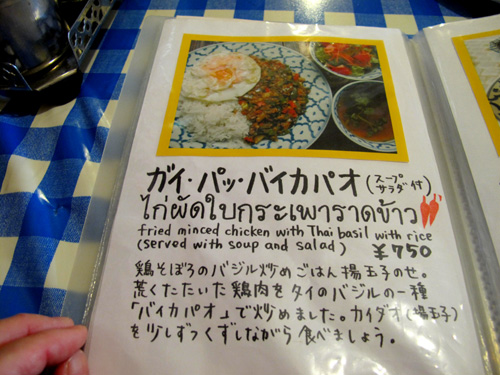 ガイ・パッ・バイカパオ(スープサラダ付)
ไก่ผัดใบกระเพาราดข้าว
fried minced chicken with Thai basil with rice
(served with soup and salad) ¥750
鶏そぼろのバジル炒めごはん揚玉子のせ。
荒くたたいた鶏肉をタイのバジルの一種
「バイカパオ」で炒めました。カイダオ(揚玉子)
を少しずつくずしながら食べましょう。